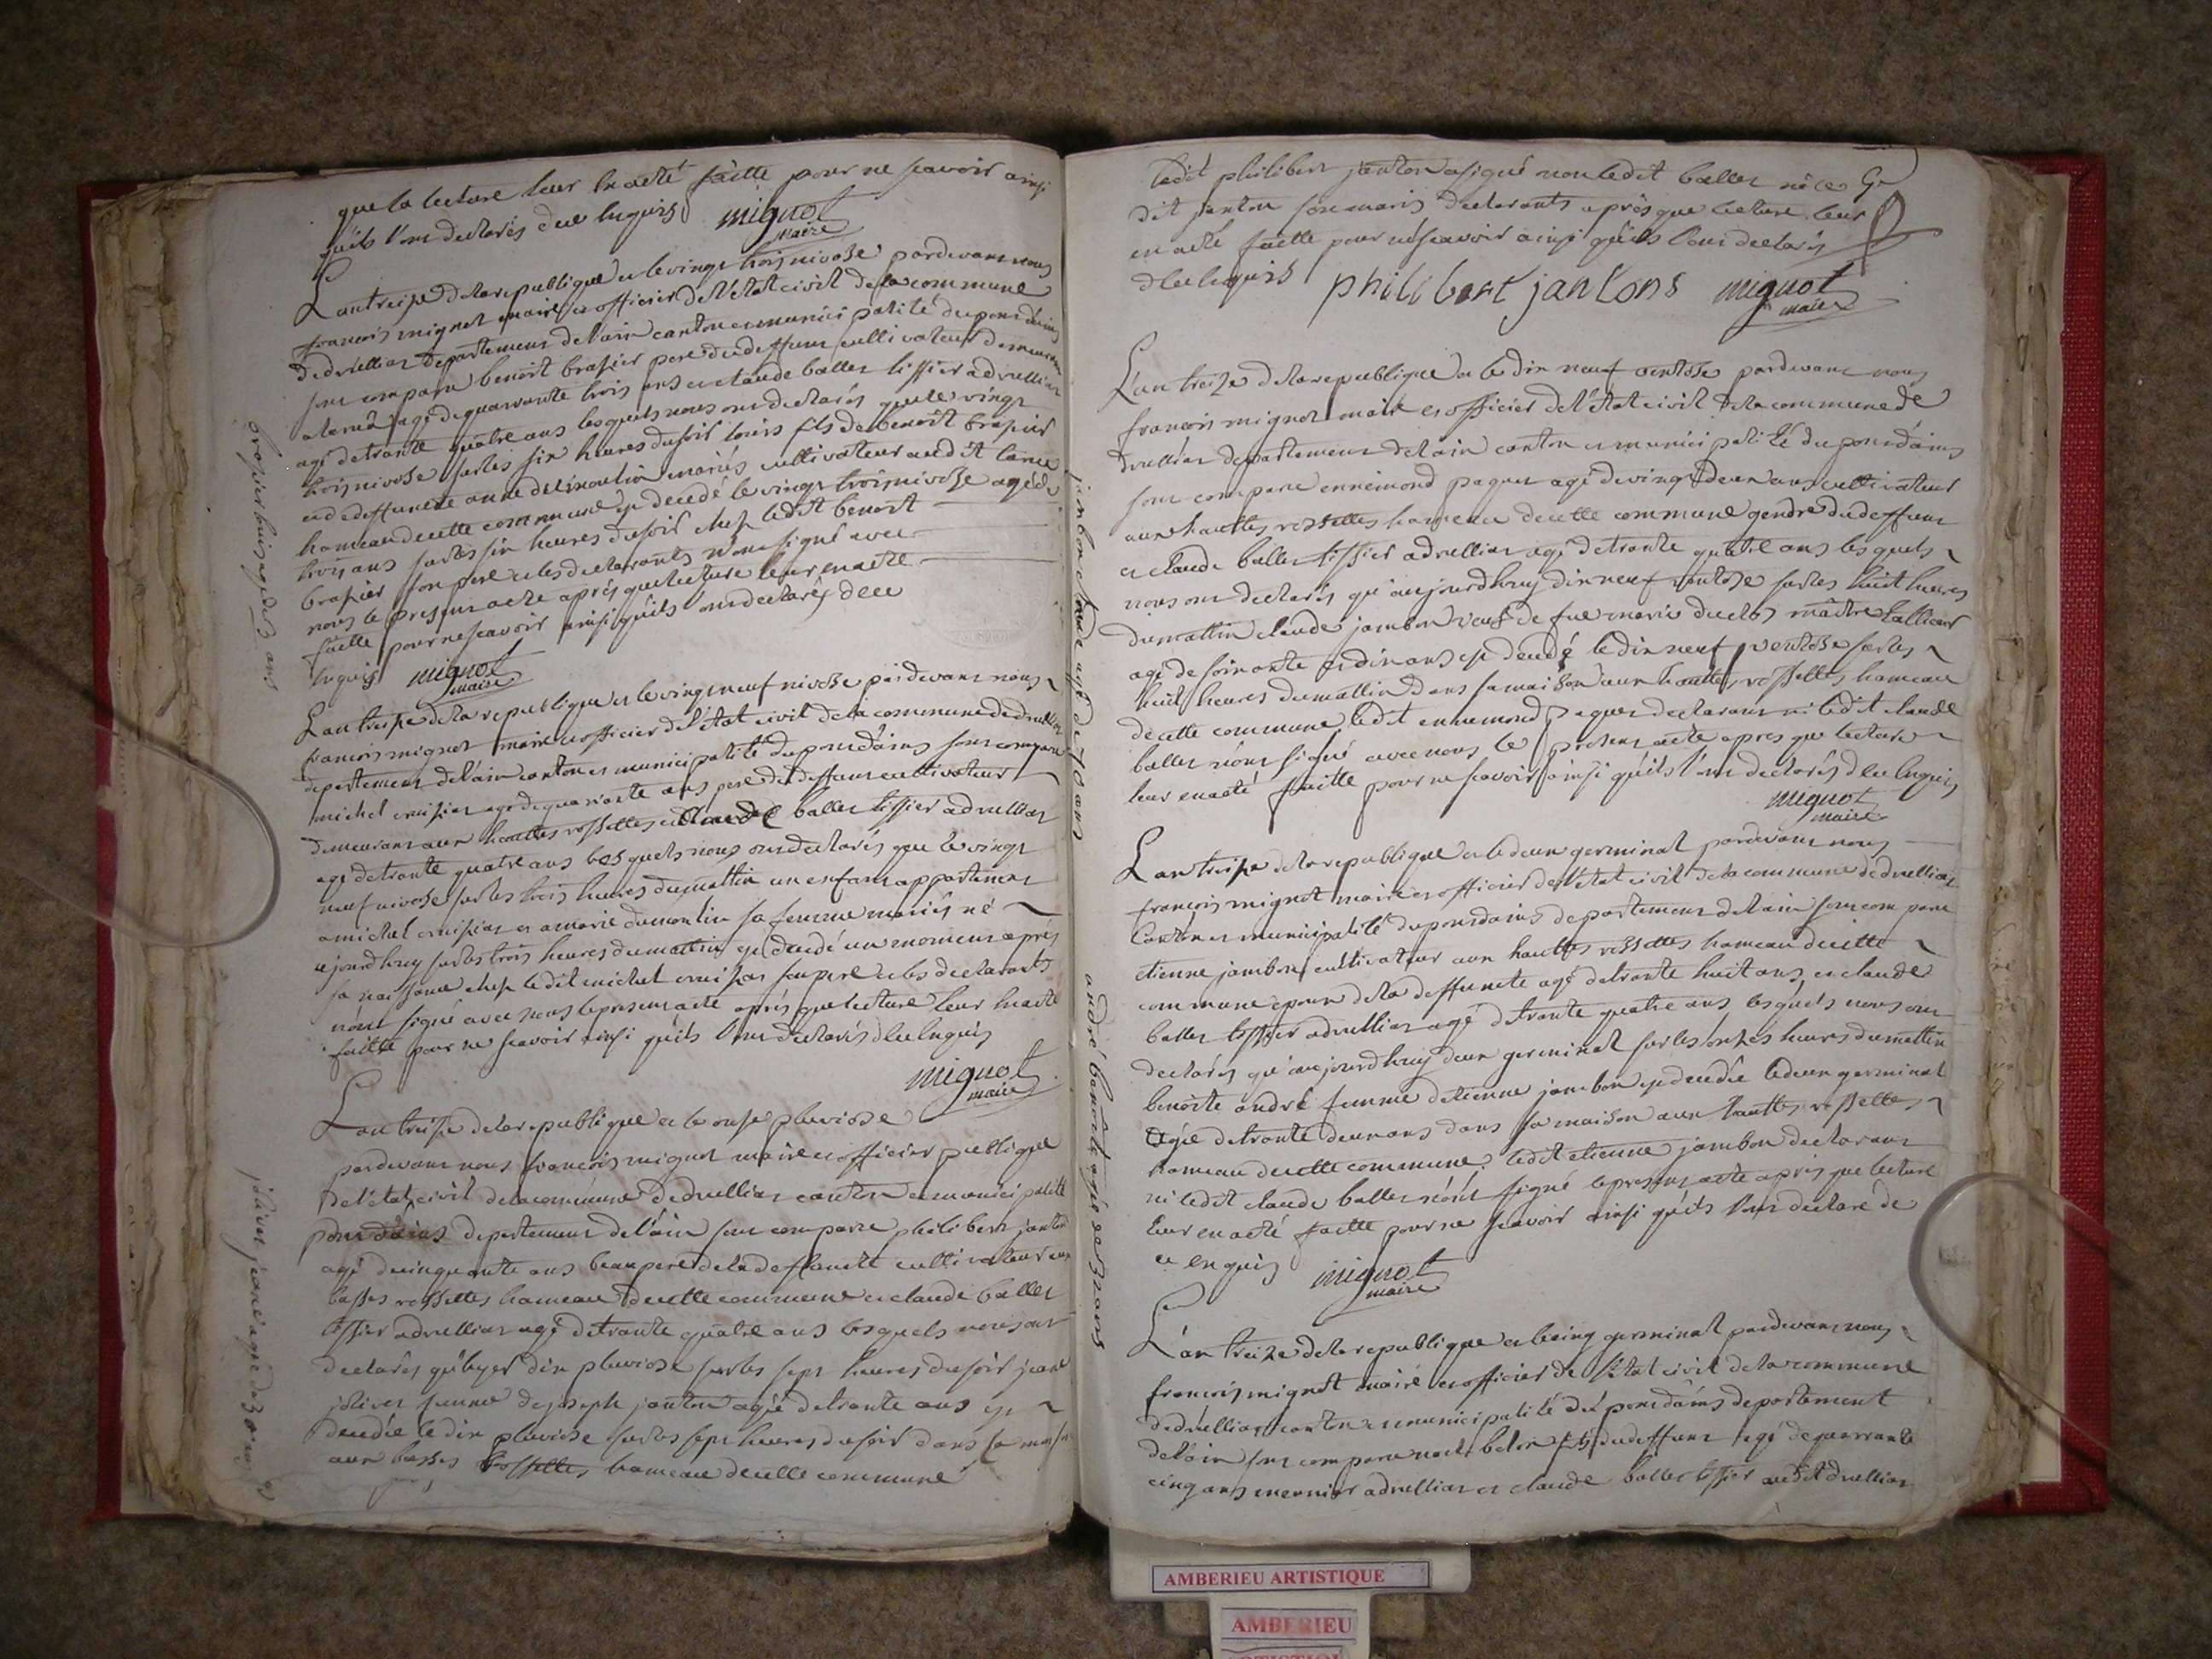 que la lecture leur en aeté faitte pour ne scavoir ainsi
quils l'ont declarés de ce enquis mignot
maire
L'an treize de la republique et le vingt trois nivose pardevant nous
francois mignot maire et officier de l'état civil de la commune
de druillias departement de l'ain canton et municipalité du pont dains
sont comparu benoit brasier pere du deffunt cultivateur demeurant
agé de quarrante trois ans et claude ballet tissier a druillias
agé de trante quatre ans lesquels nous ont declarés que le vingt
trois nivose sur les six heures du soir louis fils de benoit brasier
et de deffuncte anne dumoulin mariés cultivateur audit
hameau de cette commune est decedé le vingt trois nivose agé de
trois ans sur les six heures du soir chez ledit benoit
brasier son pere et les declarants n'ont signé avec
nous le present acte aprés que lecture leur en aeté
faitte pour ne scavoir ainsi quils l'ont declarés de ce
enquis mignot
maire
brasier louis agé de 3 ans
L'an treize de la republique et le vingt neuf nivose pardevant nous
francois mignot maire et officier de l'état civil de la commune de druillias
departement de l'ain canton et municipalité du pont dains sont comparu
michel agé de quarrante ans pere du deffunt cultivateur
demeurant aux hauttes rossettes et claude ballet tissier a druillias
agé de trante quatre ans lesquels nous ont declarés que le vingt
neuf nivose sur les trois heures du mattin un enfant appartenant
a michel et a marie dumoulin sa femme mariés né
aujourdhuy sur les trois heures du mattin est decedé un moment apres
sa naissance chez ledit michel son pere et les declarants
n'ont signé avec nous le present acte aprés que lecture leur en aeté
faitte pour ne scavoir ainsi quils l'ont declarés de ce enquis
mignot
maire
L'an treize de la republique et le onze pluviose
pardevant nous francois mignot maire et officier publique
de l'état civil de la commune de druillias canton et municipalité
pont dains departement de l'ain sont comparu philibert janton
agé de cinquante ans beau pere de la deffuncte cultivateur aux
basses rossettes hameau de cette commune et claude ballet
tissier a druillias agé de trante quatre ans lesquels nous ont
declarés qu'hyer dix pluviose sur les sept heures du soir jeane
jolivet femme de joseph janton agée de trante ans est
decedée le dix pluviose sur les sept heures du soir dans sa maison
aux basses rossettes hameau de cette commune
jolivet jeane agée de 30 ans
ledit philibert janton a signé non ledit ballet
dit janton declarants aprés que lecture leur
en aeté faitte pour ne scavoir ainsi quils l'ont declarés
de ce enquis philibert jantons mignot
maire
L'an treize de la republique et le dix neuf ventose pardevant nous
francois mignot maire et officier de l'état civil de la commune de
druillias departement de l'ain canton et municipalité du pont dains
sont comparu ennemond paquet agé de vingt deux ans cultivateur
aux hauttes rossettes hameau de cette commune gendre du deffunt
et claude ballet tissier a druillias agé de trante quatre ans lesquels
nous ont declarés qu'aujourdhuy dix neuf ventose sur les huit heures
du mattin claude jambon veuf de fue marie duclos maitre tallieur
agé de soixante et dix ans est decedé le dix neuf ventose sur les
huit heures du mattin dans sa maison aux hauttes rossettes hameau
de cette commune ledit ennemond paquet declarant ni ledit claude
ballet n'ont signé avec nous le present acte apres que lecture
leur en aeté faitte pour ne scavoir ainsi quils l'ont declarés de ce enquis
mignot
maire
jambon claude agé de 70 ans
L'an treize de la republique et le deux germinal pardevant nous
francois mignot maire et officier de l'état civil de la commune de druillias
canton et municipalité du pont dains departement de l'ain sont comparu
etienne jambon cultivateur aux hauttes rossettes hameau de cette
commune epoux de la deffuncte agé de trante huit ans et claude
ballet tissier a druillias agé de trante quatre ans lesquels nous ont
declarés qu'aujourdhuy deux germinal sur les onzes heures du mattin
benoite andré femme detienne jambon est decedée le deux germinal
agée de trante deux ans dans sa maison aux hauttes rossettes
hameau de cette commune ledit etienne jambon declarant
ni ledit claude ballet n'ont signé le present acte aprés que lecture
leur en aeté faitte pour ne scavoir ainsi quils l'ont declaré de
ce enquis mignot
maire
andré benoite agée de 32 ans
L'an treize de la republique et le cinq germinal pardevant nous
francois mignot maire et officier de l'état civil de la commune
de druillias canton et municipalité du pont dains departement
de l'ain sont comparu fils du deffunt agé de quarrante
cinq ans meunier a druillias et claude ballet tissier audit druillias
AMBERIEU ARTISTIQUE
AMBERIEU
ARTISTIQUE